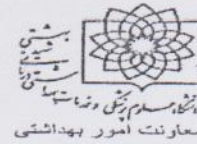 دانشگاه علوم پزشکی و خدمات
بهداشتی درمانی
شهید
بهشتی
معاونت امور بهداشتی